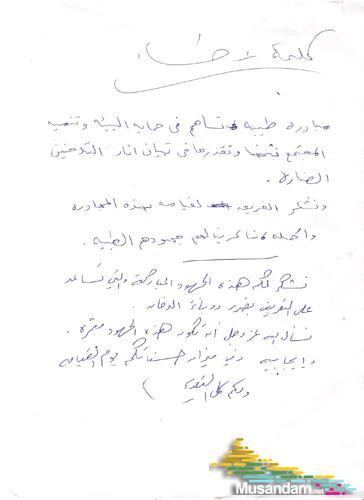 كلمة
مبادرة طيبه تساهم في حمايه البيئه وتنميه
المجتمع وتقدرها في تبيان اثار التدخين
الضاره .
ونشكر الفريق لقيامه بهذه المبادره
والحمله شاكرين لهم جهودهم الطيبه .
نشكر لكم هذه الجهود المباركة والتي تساعد
على التعريف بضرر ووباء الدخان .
نسأل الله عز وجل أن تكون هذه الجهود مثمرة
وإيجابيه وفي ميزان حسناتكم يوم القيامه
ولكم كل التقدير
Musandam.net